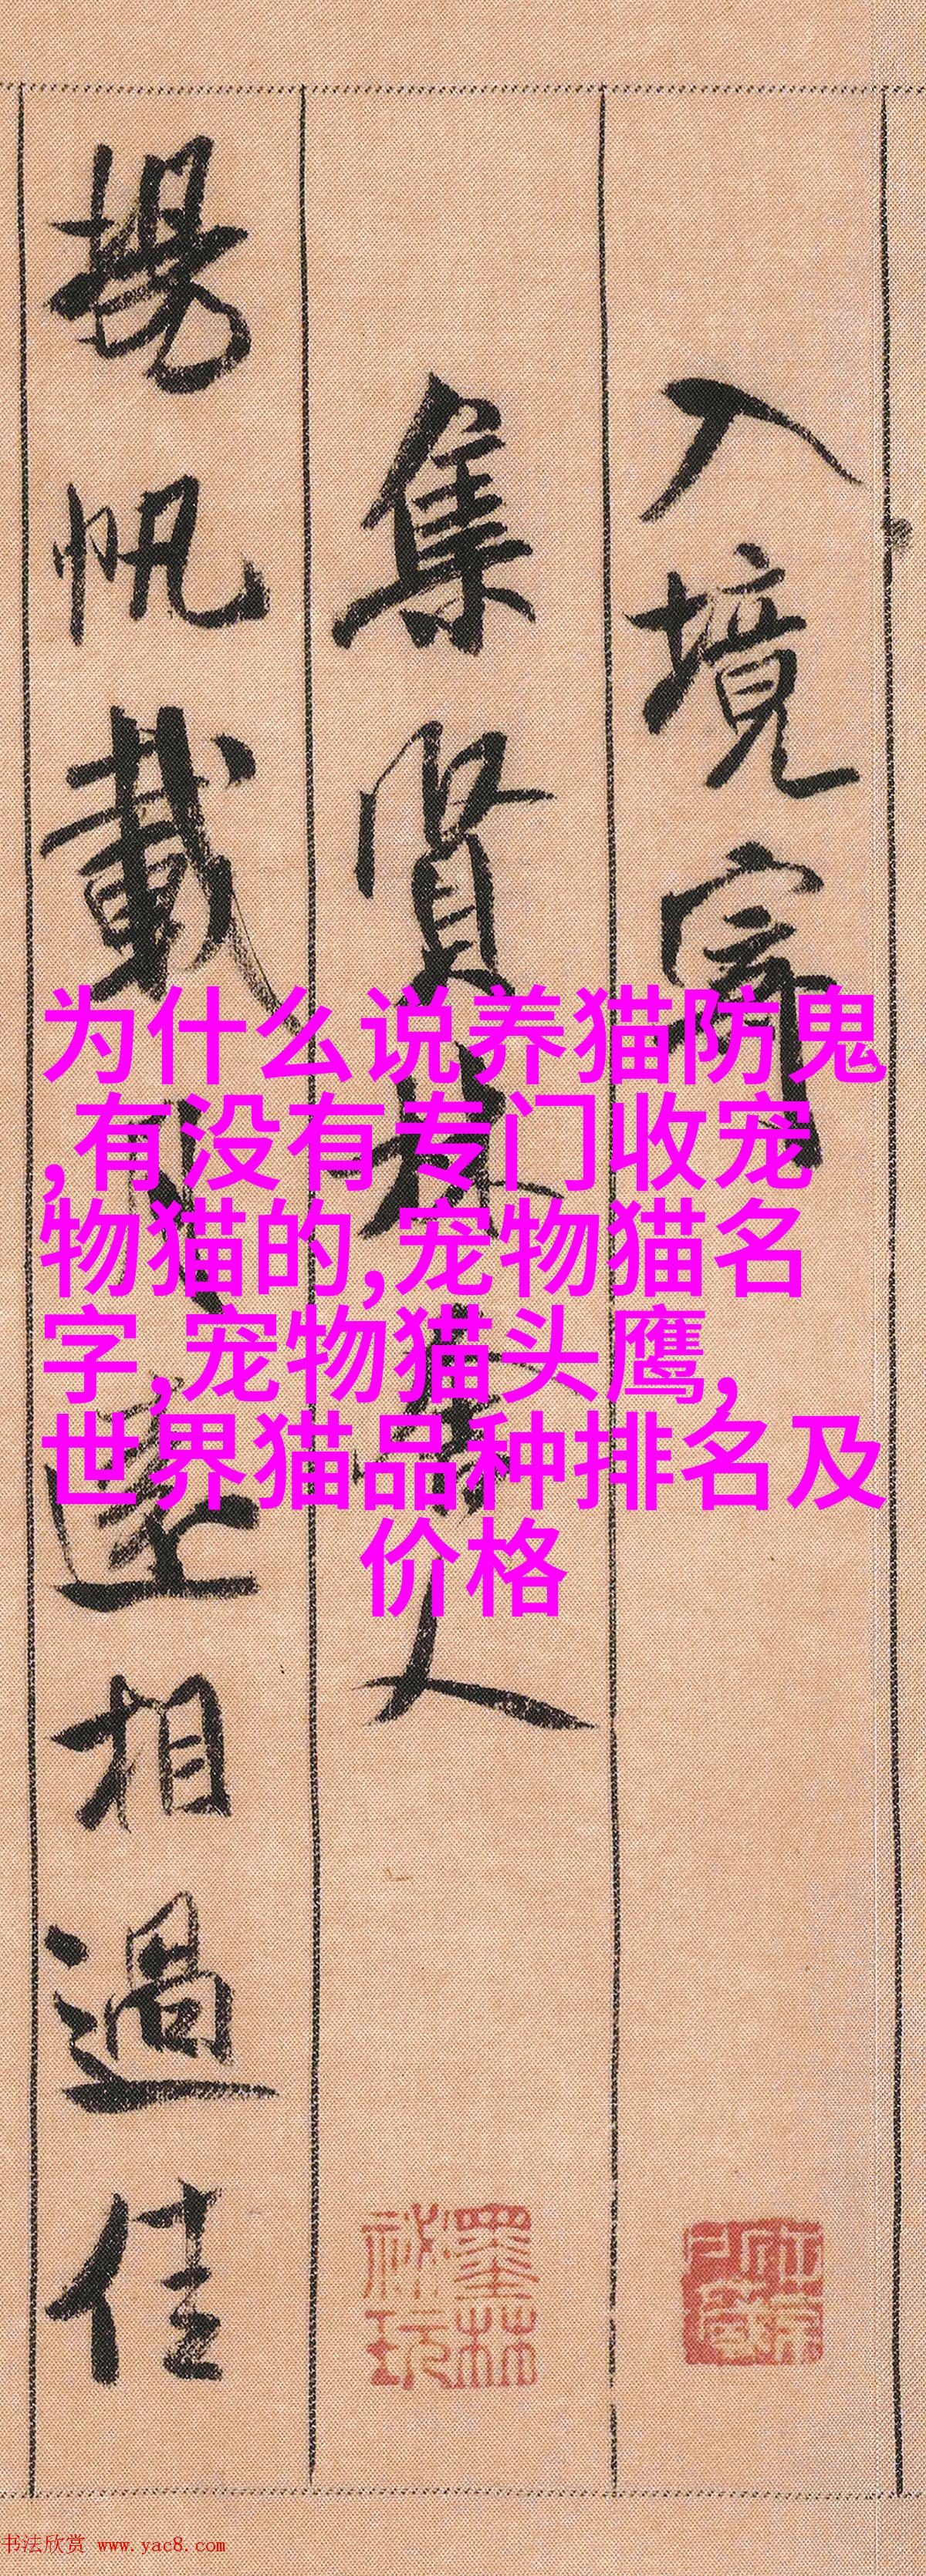 入境寄
集賢林舍人
揚帆載月遠相過佳
为什么说养猫防鬼
,有没有专门收宠
物猫的,宠物猫名
字,宠物猫头鹰,
世界猫品种排名及
价格
墨林
秘玩
书法欣赏 www.yac8.com